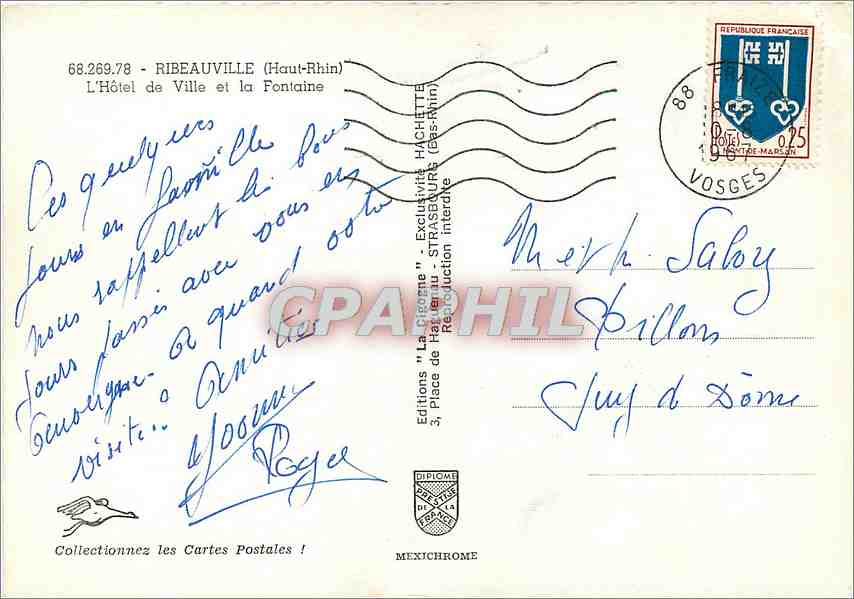 68.269.78 - RIBEAUVILLE (Haut-Rhin)
L'Hôtel de Ville et la Fontaine
Ces quelques
jours en famille
nous rappellent les bons
jours passés avec vous en
Auvergne. A quand votre
visite..? Amitiés
Yvonne
Roger
Collectionnez les Cartes Postales !
Editions "La Cigogne" - Exclusivité HACHETTE
3, Place de Haguenau - STRASBOURG (Bas-Rhin)
Reproduction interdite
DIPLOME
PRESTIGE
DE LA
FRANCE
MEXICHROME
REPUBLIQUE FRANÇAISE
POSTES 0,25
MONT-DE-MARSAN
88 FRAIZE
1967
VOSGES
M et Me
Billom
Puy de Dôme
CPAPHIL